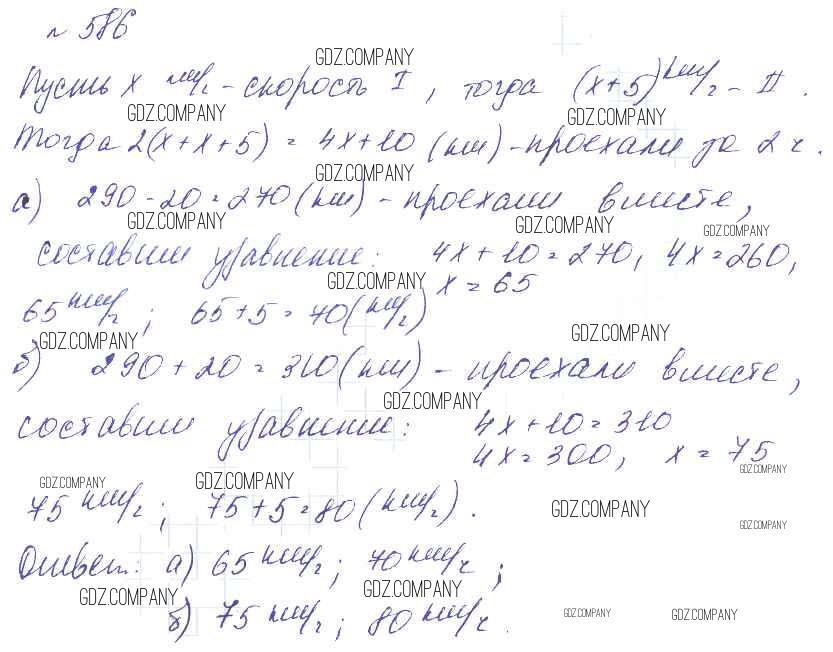 № 586
GDZ.COMPANY
Пусть x км/ч - скорость I, тогда (x+5) км/ч - II.
GDZ.COMPANY GDZ.COMPANY
Тогда 2(x+x+5) = 4x+10 (км) - проехали за 2 ч.
GDZ.COMPANY
а) 290-20=270 (км) - проехали вместе,
GDZ.COMPANY GDZ.COMPANY GDZ.COMPANY
составим уравнение: 4x+10=270, 4x=260,
GDZ.COMPANY x=65
65 км/ч; 65+5=70 (км/ч)
GDZ.COMPANY GDZ.COMPANY
б) 290+20=310 (км) - проехали вместе,
GDZ.COMPANY
составим уравнение: 4x+10=310
4x=300, x=75
GDZ.COMPANY
GDZ.COMPANY GDZ.COMPANY
75 км/ч; 75+5=80 (км/ч).
GDZ.COMPANY
GDZ.COMPANY
Ответ: а) 65 км/ч; 70 км/ч;
GDZ.COMPANY GDZ.COMPANY
б) 75 км/ч; 80 км/ч.
GDZ.COMPANY GDZ.COMPANY